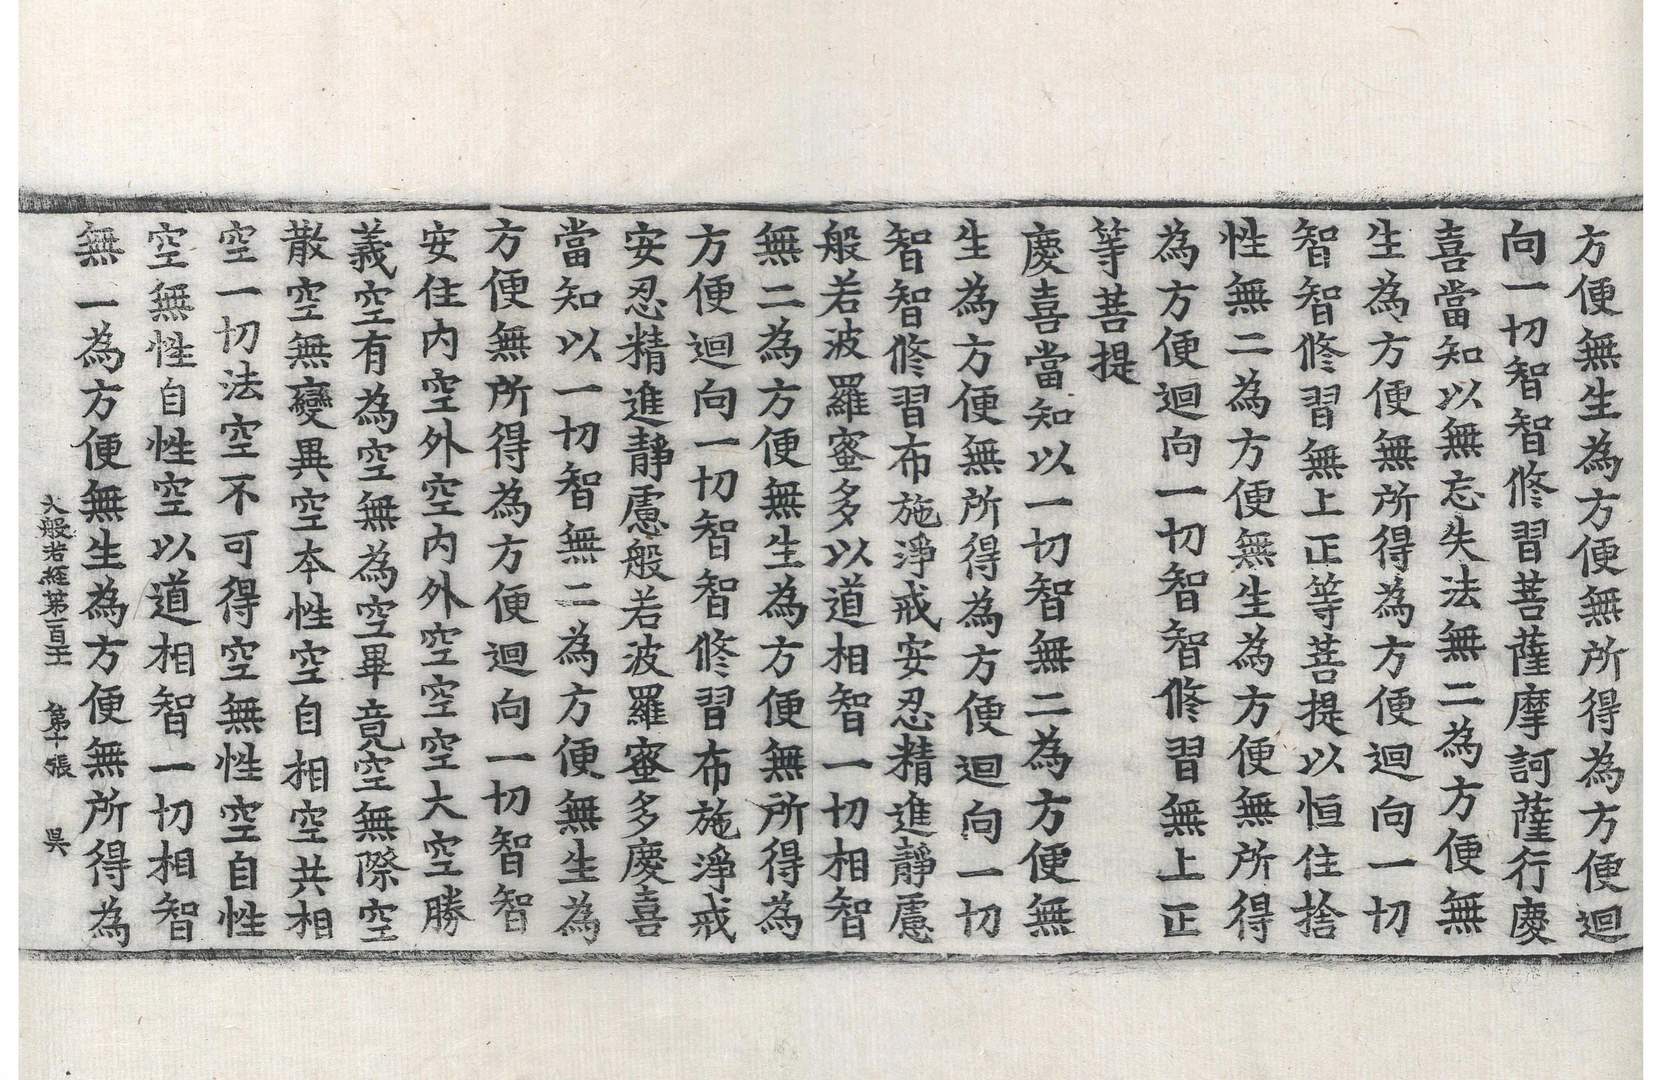 方便無生為方便無所得為方便迴
向一切智智修習菩薩摩訶薩行慶
喜當知以無忘失法無二為方便無
生為方便無所得為方便迴向一切
智智修習無上正等菩提以恒住捨
性無二為方便無生為方便無所得
為方便迴向一切智智修習無上正
等菩提
慶喜當知以一切智無二為方便無
生為方便無所得為方便迴向一切
智智修習布施淨戒安忍精進靜慮
般若波羅蜜多以道相智一切相智
無二為方便無生為方便無所得為
方便迴向一切智智修習布施淨戒
安忍精進靜慮般若波羅蜜多慶喜
當知以一切智無二為方便無生為
方便無所得為方便迴向一切智智
安住內空外空內外空空空大空勝
義空有為空無為空畢竟空無際空
散空無變異空本性空自相空共相
空一切法空不可得空無性空自性
空無性自性空以道相智一切相智
無一為方便無生為方便無所得為
大般若経第一百五 第十張 吳